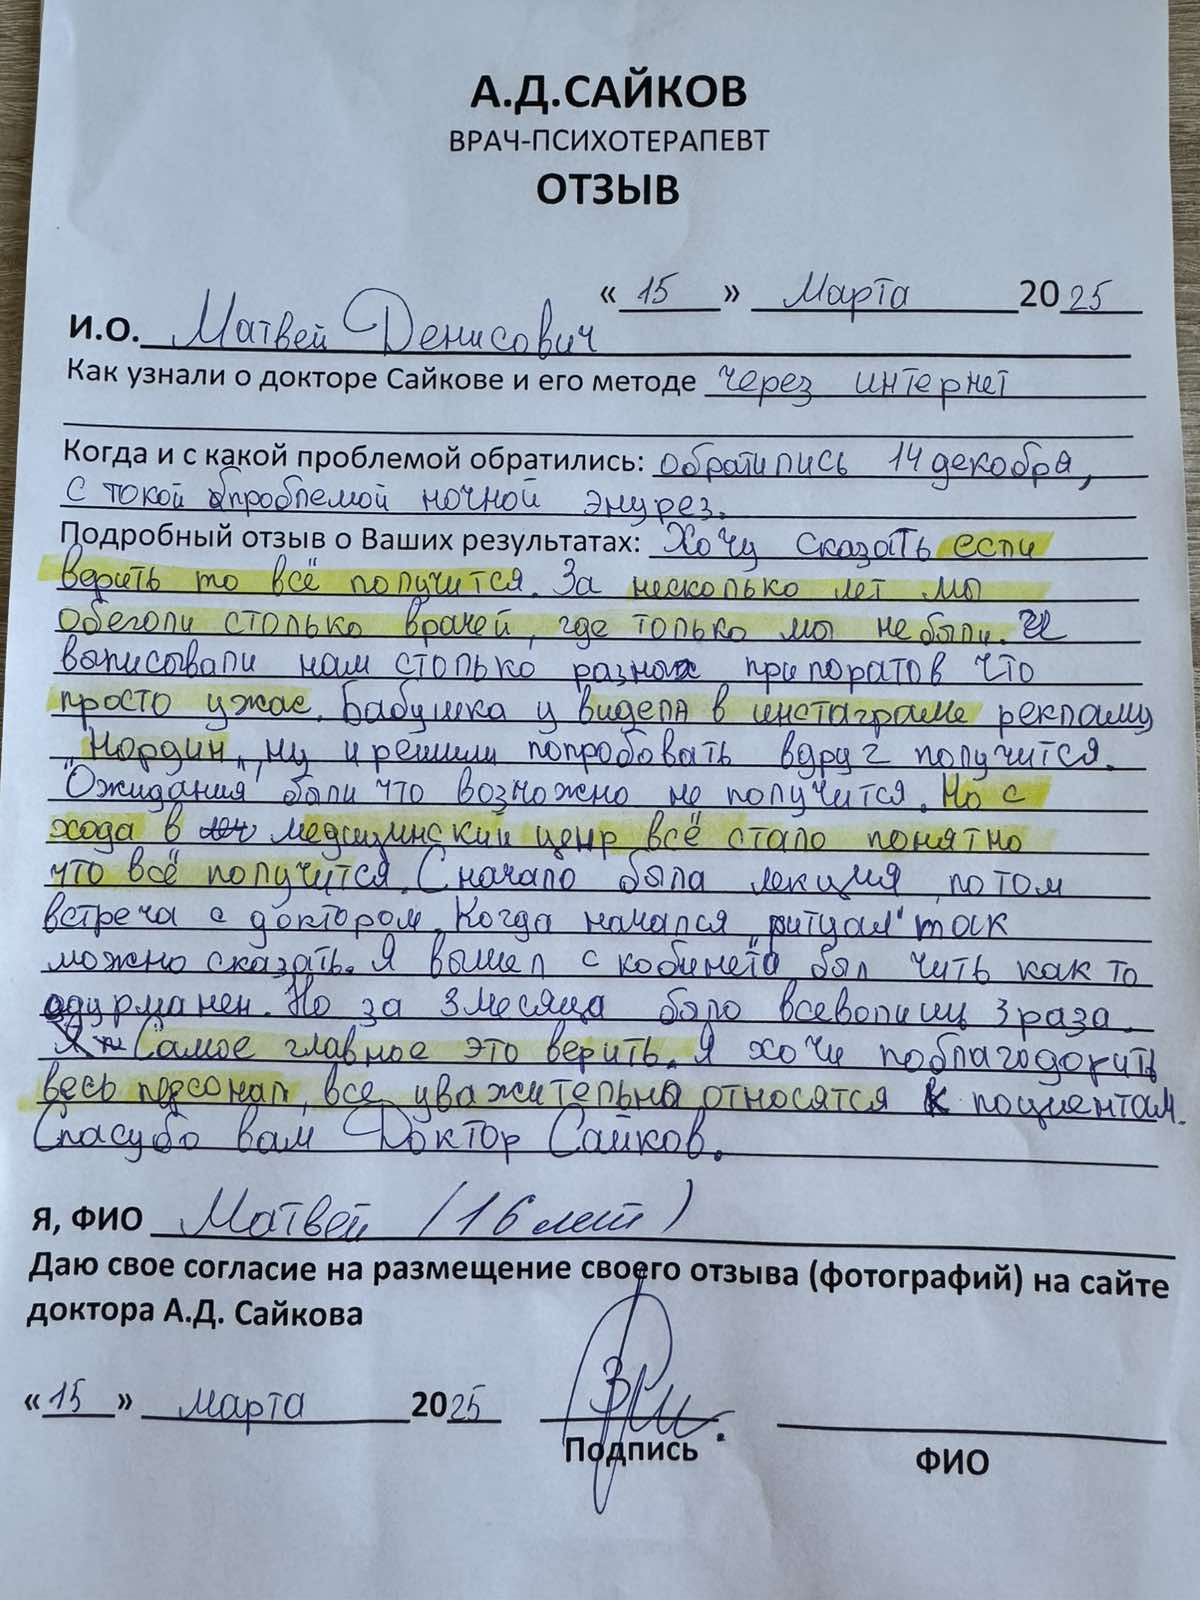 А.Д.САЙКОВ
ВРАЧ-ПСИХОТЕРАПЕВТ
ОТЗЫВ
« 15 » Марта 2025
И.О. Матвей Денисович
Как узнали о докторе Сайкове и его методе через интернет
Когда и с какой проблемой обратились: обратились 14 декабря,
с токой проблемой ночной энурез.
Подробный отзыв о Ваших результатах: Хочу сказать если
верить то всё получится. За несколько лет мы
обеголи столько врачей, где только мы не были. И
выписывали нам столько разных припоратов что
просто ужас. Бабушка увидела в инстаграме рекламу
"Нордин", ну и решили попробовать вдруг получится.
Ожидания были что возможно не получится. Но с
хода в медицинский ценр всё стало понятно
что всё получится. Сначало была лекция, потом
встреча с доктором. Когда начался "ритуал" так
можно сказать. Я вышел с кобинета был чить как то
одурманен. Но за 3 месяца было всеволишь 3 раза.
Самое главное это верить. Я хочи поблагодорить
весь песонал, все уважительно относятся к поциентам.
Спасубо вам Доктор Сайков.
Я, ФИО Матвей (16 лет)
Даю свое согласие на размещение своего отзыва (фотографий) на сайте
доктора А.Д. Сайкова
« 15 » марта 2025
Подпись
ФИО